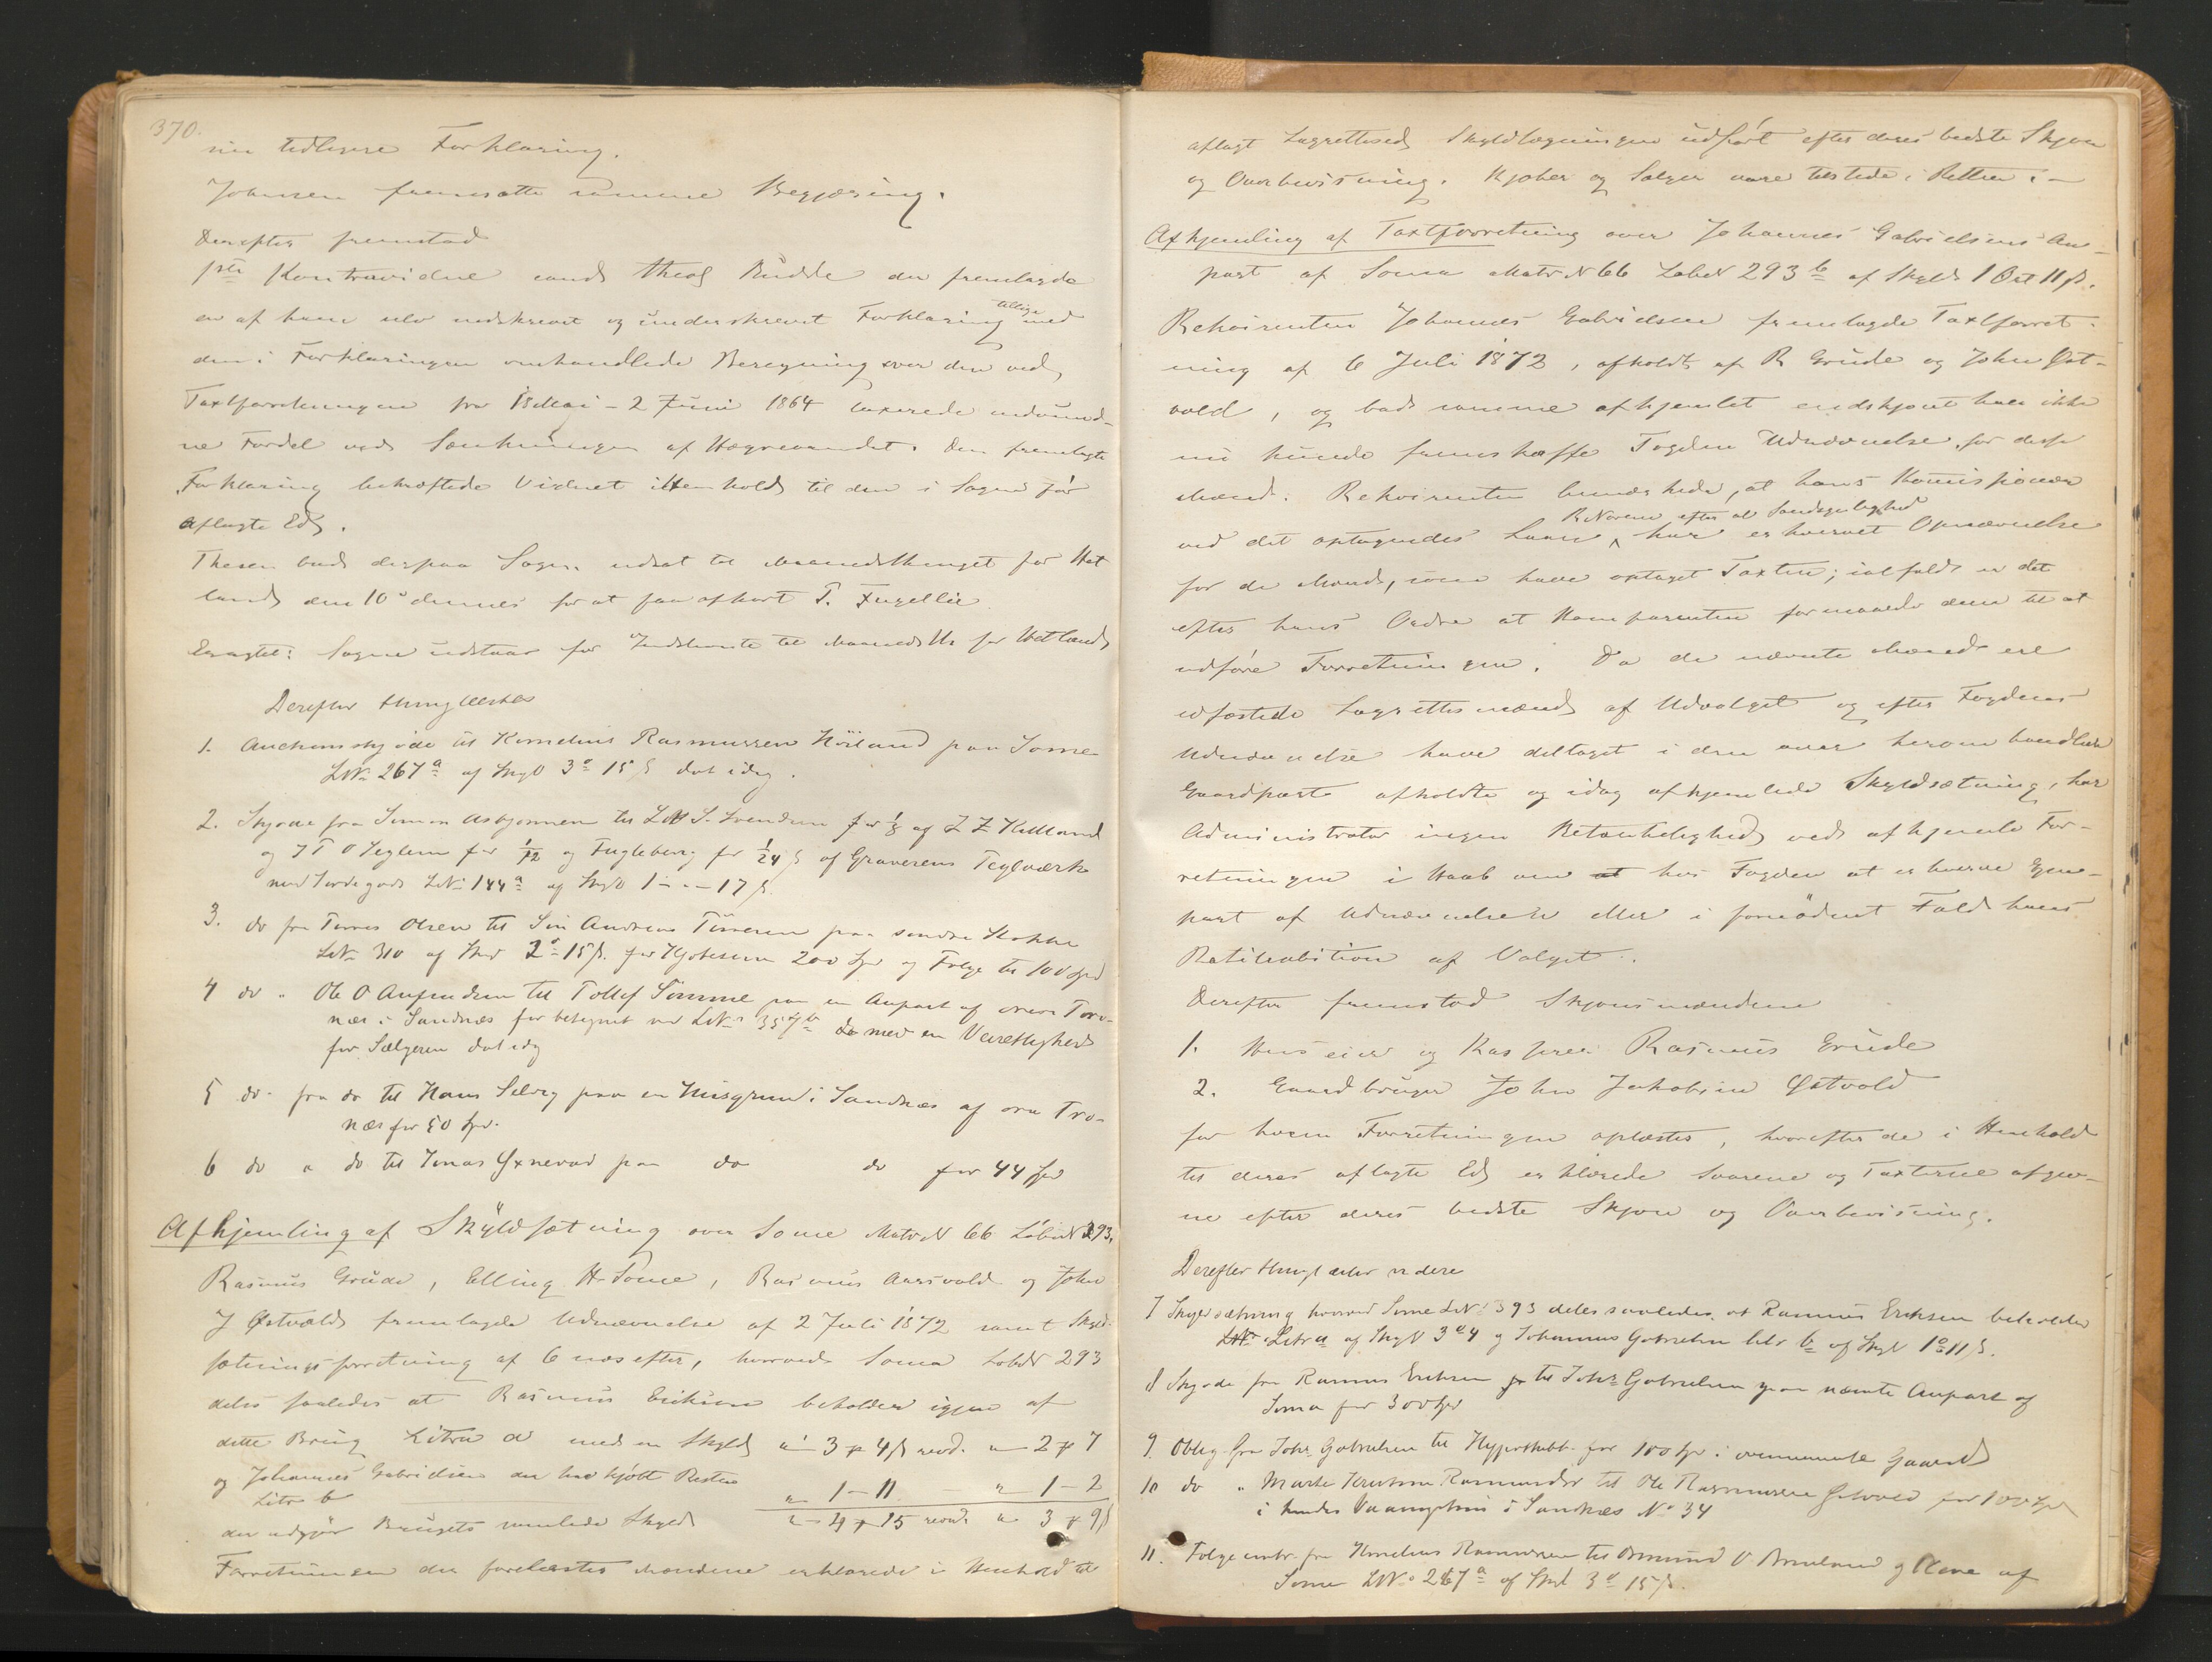 370.
sin tidligere Forklaring.
Johnsen fremsatte samme Begjæring.
Derefter fremstod
1ste Kontravidne cand. theol Budde der fremlagde
en af ham selv nedskrevet og underskrevet Forklaring tillige med
den i Forklaringen omhandlede Beregning over den ved
Taxtforretningen fra 18 Mai - 2 Juni 1864 taxerede indvund-
ne Fordel ved Sænkningen af Vandet. Den fremlagte
Forklaring bekræftede Vidnet i Henhold til den i Sagen før
aflagte Ed.
Thesen bad derpaa Sagen udsat til Maanedsthinget for Het
land den 10de dennes for at faa afhørt T. Fugellie
Eragtet: Sagen udstaar for Indkomne til Maanedsth. for Hetland
Derefter thinglæstes
1. Auctionsskjøde til Kornelius Rasmussen Høiland paa Some
LNo 267a af Skyld 3o 15 ß dat idag.
2. Skjøde fra Simon Asbjørnsen til S. Svendsen for 1/8 af Z Z Kielland
og J T O Teglem for 1/12 og Fugleberg for 1/24 ß af Graverens Teglværk
med Jordegods LNo 144a af Skyld 1 - " - 17 ß.
3. do fra Tørres Olsen til Søn Andreas Tørresen paa søndre Hokke
LNo 310 af Skyld 2o 15 ß. for Kjøbesum 200 Spd og Følge til 100 Spd
4 do " Ole O Aufindsen til Tollef Sømme paa en Anpart af øvre Tro-
næs i Sandnæs før betegnet ved LNo 357b do med en Veirettighed
for Sælgeren dat idg
5 do. fra do til Hans Selvig paa en Husgrund i Sandnæs af øvre Tro-
næs for 50 Spd.
6 do " do til Jonas Øxnevad paa do do for 44 Spd
Afhjemling af Skyldsætning over Some Matr N 66 Løbe N 293.
Rasmus Grude, Elling H. Some, Rasmus Aarsvold og John
J Østvold fremlagde Udnævnelse af 2 Juli 1872 samt Skyld-
sætningsforretning af 6 næsefter, hvorved Soma Løbe N 293
deles saaledes at Rasmus Eriksen beholder igjen af
dette Brug Litra a med en Skyld a 3 - 4 ß revd. a 2 - 7
og Johannes Gabrielsen der har kjøbt Resten
Litr b " 1 - 11 " 1 - 2
der udgjør Brugets samlede Skyld " 4 - 15 revd. a 3 - 9 ß
Forretningen der forelæstes Mændene erklærede i Henhold til
aflagt Lagrettesed Skyldlægningen udført efter deres bedste Skjøn
og Overbevisning. Kjøber og Sælger vare tilstede i Retten. -
Afhjemling af Taxtforretning over Johannes Gabrielsens An-
part af Soma Matr N 66 Løbe N 293 b af Skyld 1 Ort 11 ß.
Rekvirenten Johannes Gabrielsen fremlagde Taxtforret-
ning af 6 Juli 1872, afholdt af R Grude og John Øst-
vold, og bad samme afhjemlet endskjønt han ikke
nu kunde fremskaffe Fogdens Udnævnelse for disse
Mænd. Rekvirenten bemærkede, at hans Komissionær
R Noreen efter al Sandsynlighed
ved det optagendes Laan har erhvervet Opnævnelse
for de Mænd, som have optaget Taxten; ialfald er det
efter hans Ordre at Komparenten formaaede dem til at
udføre Forretningen. Da de nævnte Mænd ere
edfæstede Lagrettesmænd af Udvalget og efter Fogdens
Udnævnelse have deltaget i den over heromhandlede
Gaardpart afholdte og idag afhjemlede Skyldsætning, har
Administrator ingen Betænkelighed ved at hjemle For-
retningen i Haab om hos Fogden at erhverve Gjen-
part af Udnævnelsen eller i fornødent Fald hans
Ratihabition af Valget.
Derefter fremstod Skjønsmændene
1. Huseier og Kasserer Rasmus Grude
2. Gaardbruger John Jakobsen Østvold
for hvem Forretningen oplæstes, hvorefter de i Henhold
til deres aflagte Ed erklærede Svarene og Taxterne afgiv-
ne efter deres bedste Skjøn og Overbevisning.
Derefter thinglæstes videre
7 Skyldsætning hvorved Some LNo 393 deles saaledes, at Rasmus Eriksen beholder
Litra a af Skyld 3o 4 og Johannes Gabrielsen litr b af Skyld 1o 11 ß.
8 Skjøde fra Rasmus Eriksen til Johs Gabrielsen paa nævnte Anpart af
Soma for 300 Spd
9. Oblig. fra Johs Gabrielsen til Hypothekb. for 100 Spd i ovennævnte Gaard
10 do " Marte Rasmusdtr til Ole Rasmussen for 100 Spd
i hendes Vaaningshus i Sandnæs No 34
11. Følgecontr. fra Kornelius Rasmussen til Omund O og Kone af
Some LNo 267a af Skyld 3o 15 ß.